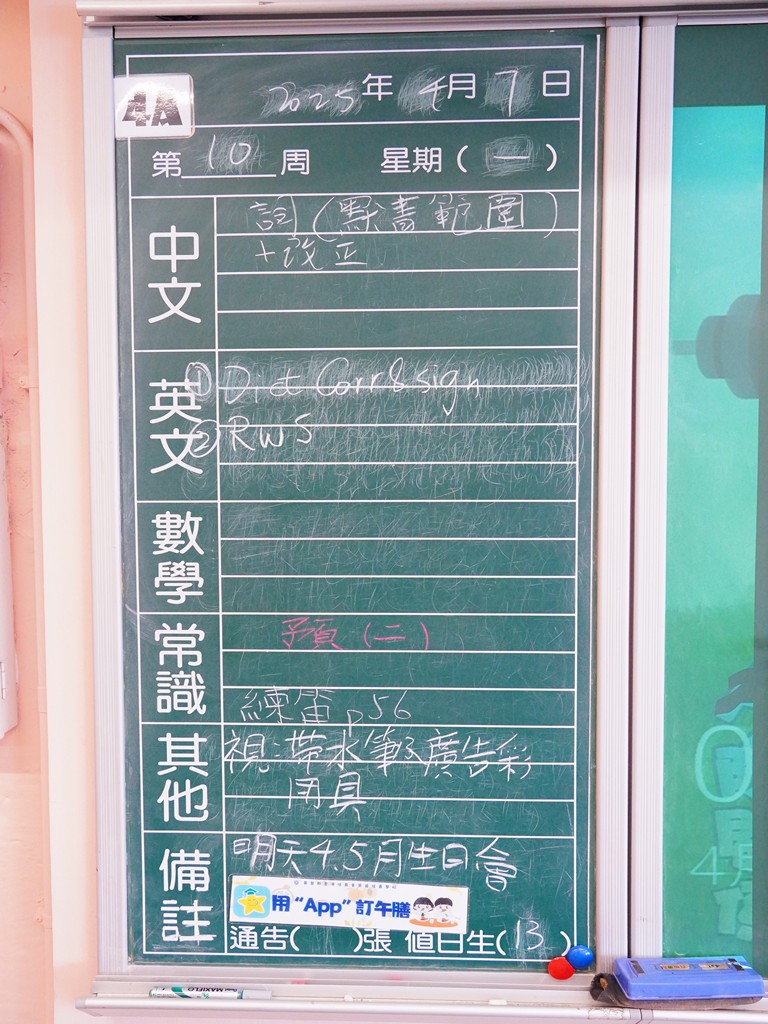 4A
2025年 4月 7日
第 10 周 星期（一）
中文
詞（默書範圍）
+改正
英文
① Dict Corr & sign
② RWS
數學
常識
預（二）
練笛 p56
其他
視：帶水筆及廣告彩
用具
備註
明天4.5月生日會
用 “App” 訂午膳
通告( )張 值日生(13)
MAXIFLO
4月